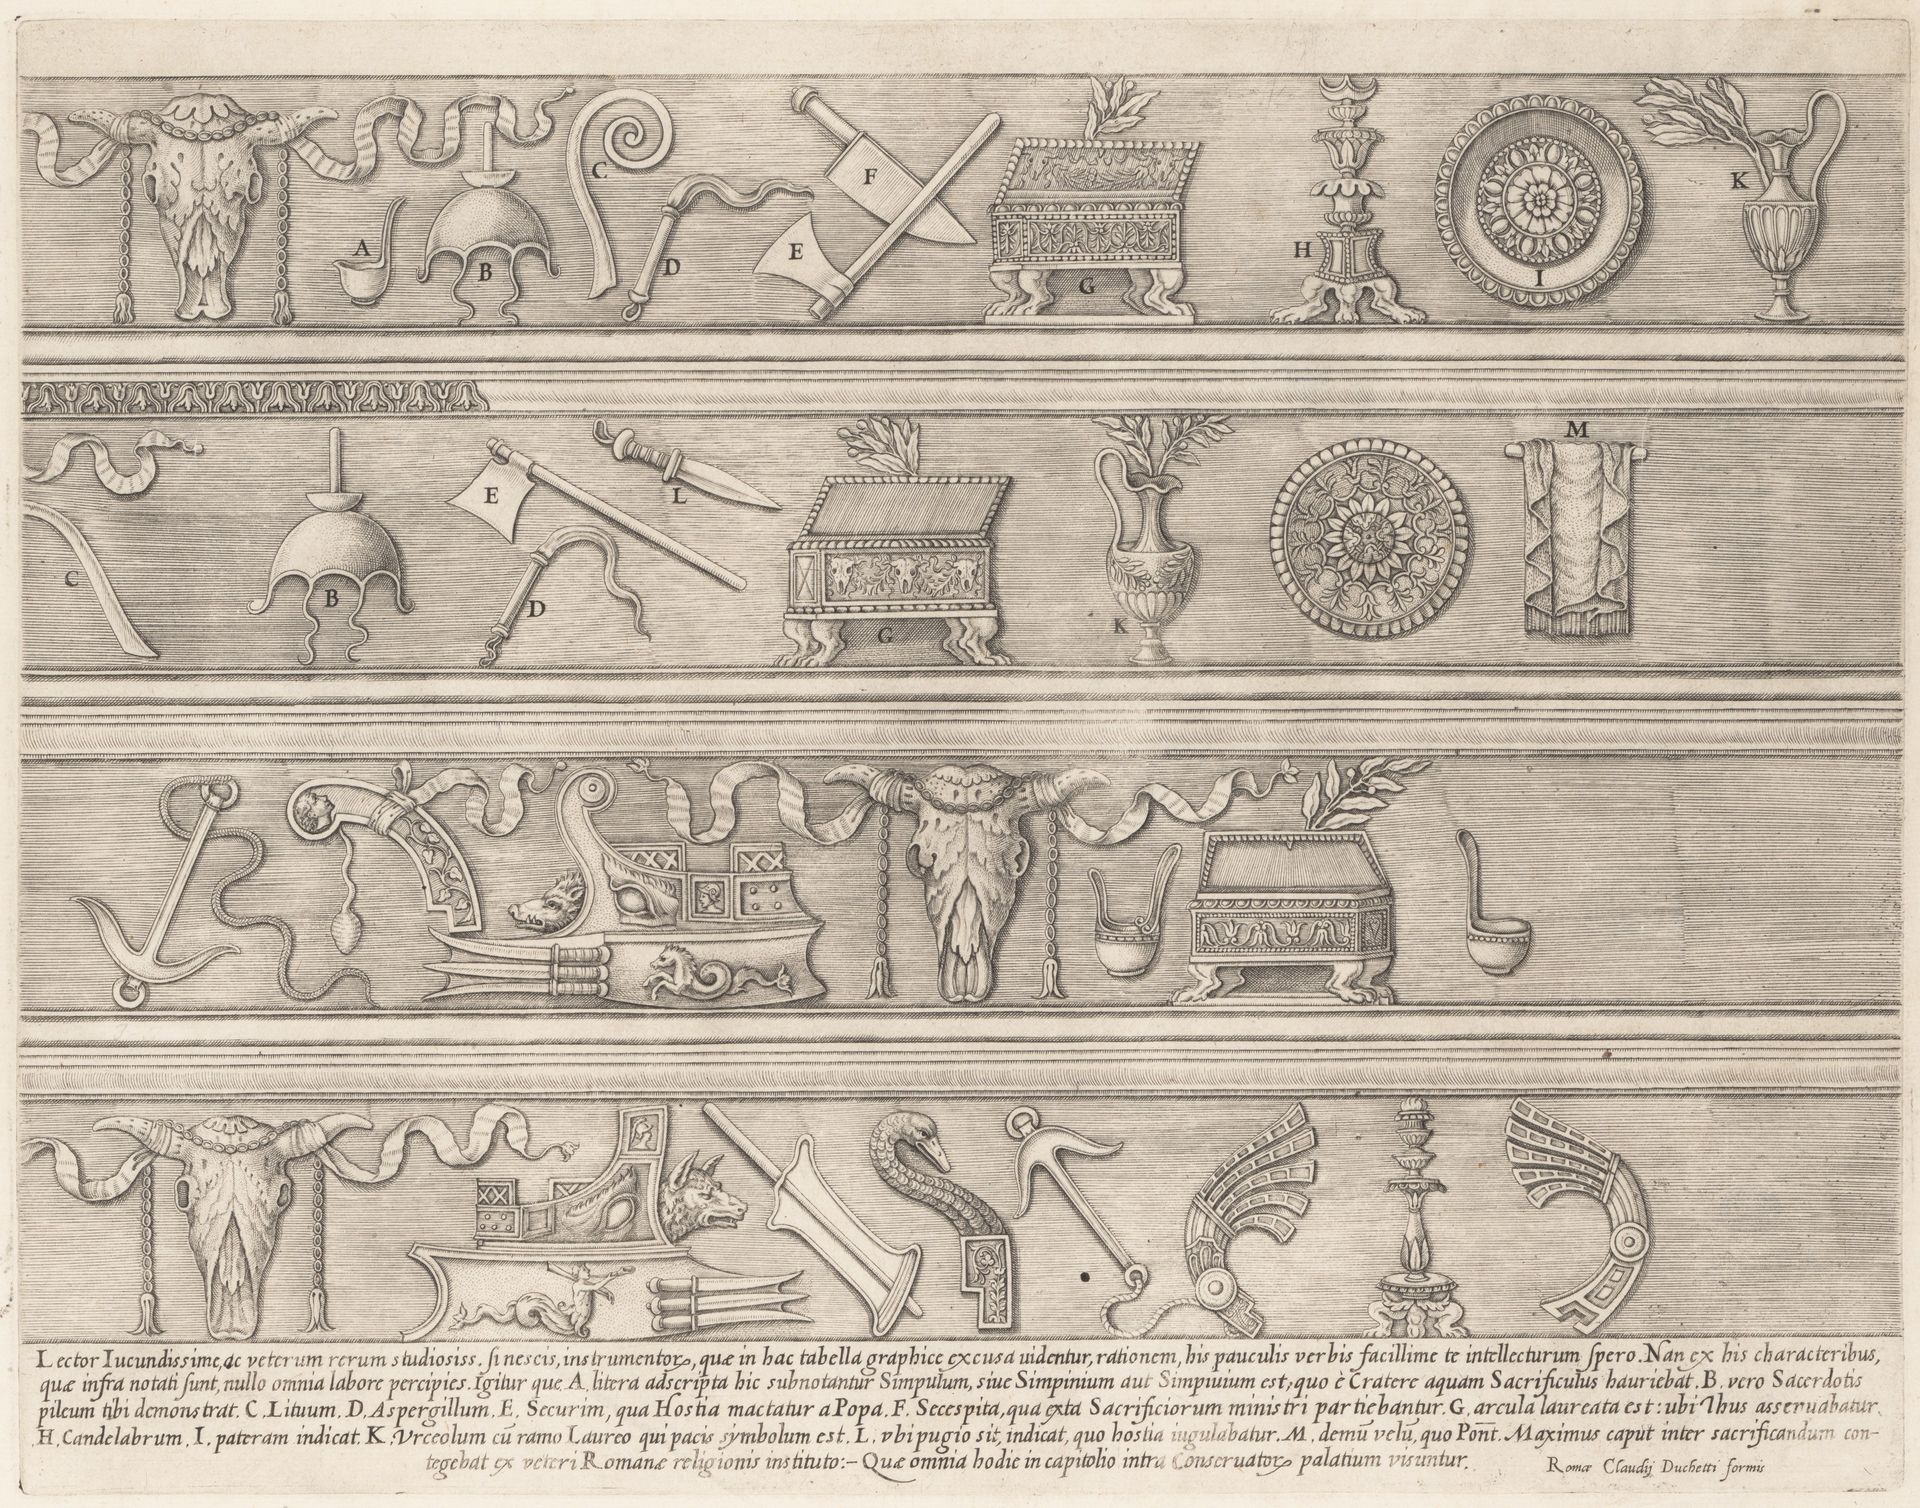 A
B
C
D
E
F
G
H
I
K
C
B
E
D
L
G
K
M
Lector Iucundissime, ac veterum rerum studiosiss. si nescis, instrumentoꝝ, quæ in hac tabella graphice excusa uidentur, rationem, his pauculis verbis facillime te intellecturum spero. Nan ex his characteribus,
quæ infra notati sunt, nullo omnia labore percipies. Igitur que A. litera adscripta hic subnotantur Simpulum, siue Simpinium aut Simpiuium est, quo è Cratere aquam Sacrificulus hauriebat. B. vero Sacerdotis
pileum tibi demonstrat. C. Lituum. D. Aspergillum. E. Securim, qua Hostia mactatur a Popa. F. Secespita, qua exta Sacrificiorum ministri partiebantur. G. arcula laureata est: ubi Thus asseruabatur.
H. Candelabrum. I. pateram indicat. K. Vrceolum cū ramo Laureo qui pacis symbolum est. L. vbi pugio sit, indicat, quo hostia iugulabatur. M. demū velū, quo Pont̄. Maximus caput inter sacrificandum con-
tegebat ex veteri Romanæ religionis instituto:- Quæ omnia hodie in capitolio intra Conseruatoꝝ palatium visuntur.
Romæ Claudij Duchetti formis